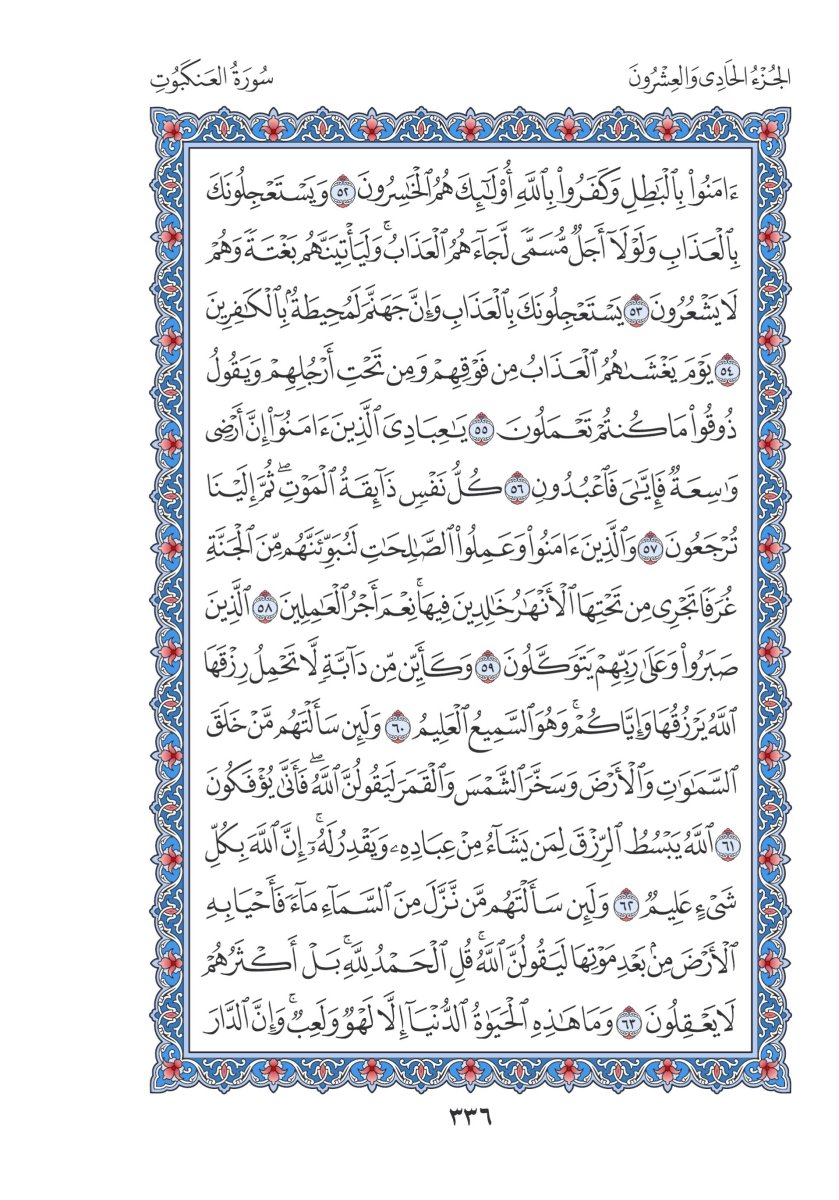 الجُزْءُ الحَادِى وَالعِشْرُونَ
سُورَةُ العَنكَبُوتِ
ءَامَنُوا۟ بِٱلْبَـٰطِلِ وَكَفَرُوا۟ بِٱللَّهِ أُو۟لَـٰٓئِكَ هُمُ ٱلْخَـٰسِرُونَ ٥٢ وَيَسْتَعْجِلُونَكَ
بِٱلْعَذَابِ وَلَوْلَآ أَجَلٌ مُّسَمًّى لَّجَآءَهُمُ ٱلْعَذَابُ ۚ وَلَيَأْتِيَنَّهُم بَغْتَةً وَهُمْ
لَا يَشْعُرُونَ ٥٣ يَسْتَعْجِلُونَكَ بِٱلْعَذَابِ وَإِنَّ جَهَنَّمَ لَمُحِيطَةٌۢ بِٱلْكَـٰفِرِينَ
٥٤ يَوْمَ يَغْشَىٰهُمُ ٱلْعَذَابُ مِن فَوْقِهِمْ وَمِن تَحْتِ أَرْجُلِهِمْ وَيَقُولُ
ذُوقُوا۟ مَا كُنتُمْ تَعْمَلُونَ ٥٥ يَـٰعِبَادِىَ ٱلَّذِينَ ءَامَنُوٓا۟ إِنَّ أَرْضِى
وَٰسِعَةٌ فَإِيَّـٰىَ فَٱعْبُدُونِ ٥٦ كُلُّ نَفْسٍ ذَآئِقَةُ ٱلْمَوْتِ ۖ ثُمَّ إِلَيْنَا
تُرْجَعُونَ ٥٧ وَٱلَّذِينَ ءَامَنُوا۟ وَعَمِلُوا۟ ٱلصَّـٰلِحَـٰتِ لَنُبَوِّئَنَّهُم مِّنَ ٱلْجَنَّةِ
غُرَفًا تَجْرِى مِن تَحْتِهَا ٱلْأَنْهَـٰرُ خَـٰلِدِينَ فِيهَا ۚ نِعْمَ أَجْرُ ٱلْعَـٰمِلِينَ ٥٨ ٱلَّذِينَ
صَبَرُوا۟ وَعَلَىٰ رَبِّهِمْ يَتَوَكَّلُونَ ٥٩ وَكَأَيِّن مِّن دَآبَّةٍ لَّا تَحْمِلُ رِزْقَهَا
ٱللَّهُ يَرْزُقُهَا وَإِيَّاكُمْ ۚ وَهُوَ ٱلسَّمِيعُ ٱلْعَلِيمُ ٦٠ وَلَئِن سَأَلْتَهُم مَّنْ خَلَقَ
ٱلسَّمَـٰوَٰتِ وَٱلْأَرْضَ وَسَخَّرَ ٱلشَّمْسَ وَٱلْقَمَرَ لَيَقُولُنَّ ٱللَّهُ ۖ فَأَنَّىٰ يُؤْفَكُونَ
٦١ ٱللَّهُ يَبْسُطُ ٱلرِّزْقَ لِمَن يَشَآءُ مِنْ عِبَادِهِۦ وَيَقْدِرُ لَهُۥٓ ۚ إِنَّ ٱللَّهَ بِكُلِّ
شَىْءٍ عَلِيمٌ ٦٢ وَلَئِن سَأَلْتَهُم مَّن نَّزَّلَ مِنَ ٱلسَّمَآءِ مَآءً فَأَحْيَا بِهِ
ٱلْأَرْضَ مِنۢ بَعْدِ مَوْتِهَا لَيَقُولُنَّ ٱللَّهُ ۚ قُلِ ٱلْحَمْدُ لِلَّهِ ۚ بَلْ أَكْثَرُهُمْ
لَا يَعْقِلُونَ ٦٣ وَمَا هَـٰذِهِ ٱلْحَيَوٰةُ ٱلدُّنْيَآ إِلَّا لَهْوٌ وَلَعِبٌ ۚ وَإِنَّ ٱلدَّارَ
٣٣٦